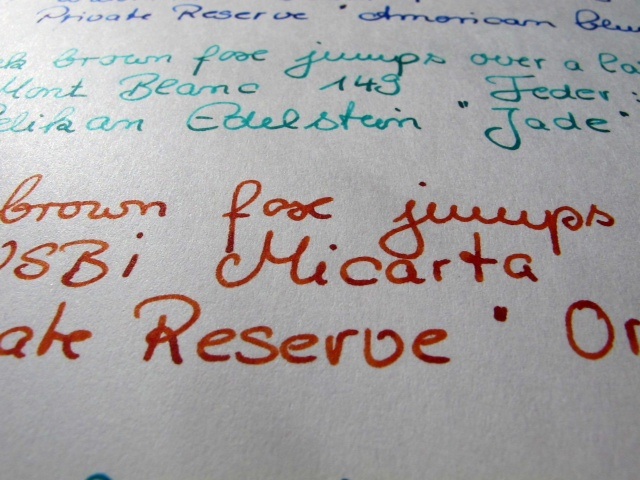 Private Reserve "American Blue
brown fox jumps over a la
Mont Blanc 149 Feder:
elikan Edelstein "Jade"
brown fox jumps
WSBi Micarta
ate Reserve " Or